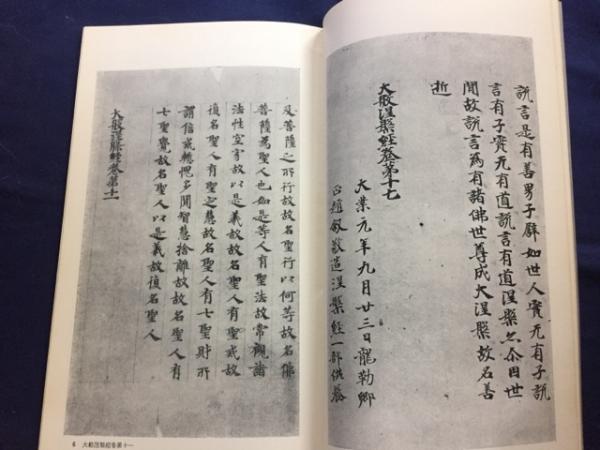 說言是有善男子辟如世人實无有子說
言有子實无有道說言有道涅槃亦尒因世
聞故說言為有諸佛世尊成大涅槃故名善
逝
大般涅槃經卷第十七
大業元年九月廿三日龍勒鄉
趙 敬造涅槃經一部供養
及菩薩之所行故故名聖行以何等故名佛
菩薩為聖人也如是等人有聖法故常觀諸
法性空寂故以是義故名聖人有聖戒故
復名聖人有聖之慧故名聖人有七聖財所
謂信戒慚愧多聞智慧捨離故故名聖人有
七聖覺故名聖人以是義故復名聖人
大般涅槃經卷第十一
6 大般涅槃経巻第十一